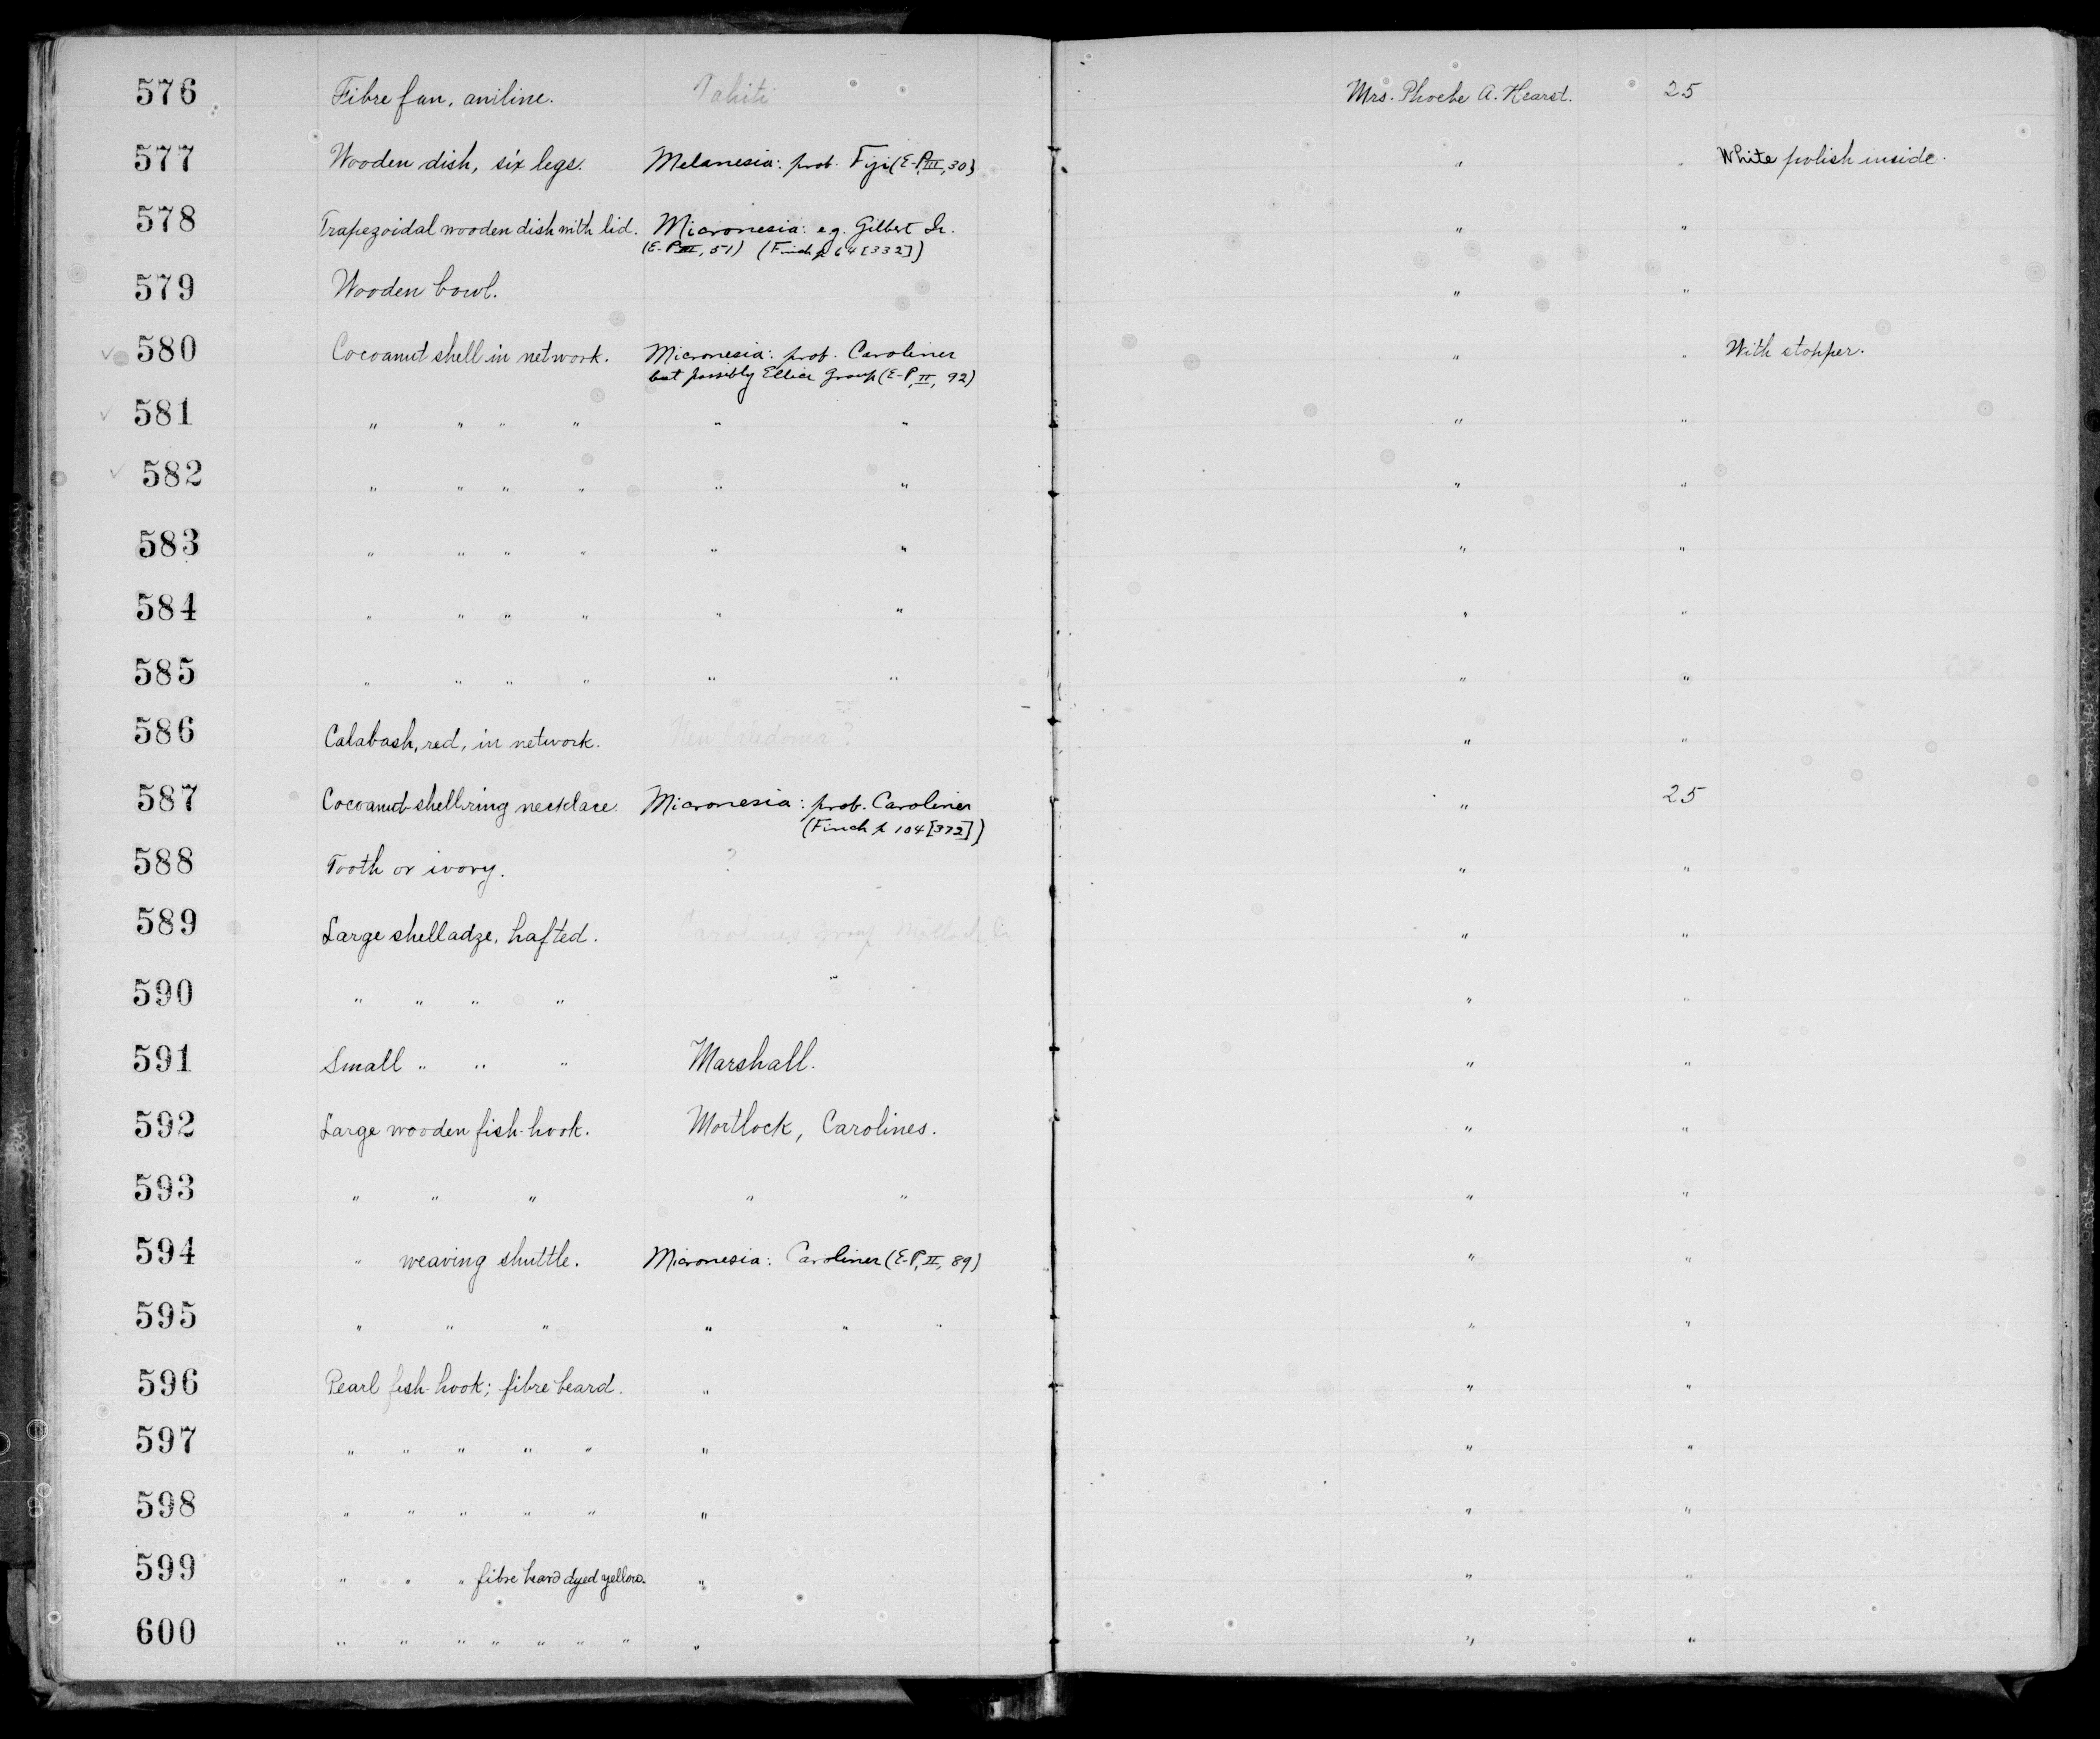 576 Fibre fan, aniline. Tahiti Mrs. Phoebe A. Hearst. 25
577 Wooden dish, six legs. Melanesia: prob. Fiji (E-P, III, 30) " " White polish inside.
578 Trapezoidal wooden dish with lid. Micronesia: e.g. Gilbert Is. " "
(E-P III, 51) (Finch p 64 [332])
579 Wooden bowl. " "
580 Cocoanut shell in network. Micronesia: prob. Carolines " " With stopper.
but possibly Ellice Group (E-P, II, 92)
581 " " " " " " " "
582 " " " " " " " "
583 " " " " " " " "
584 " " " " " " " "
585 " " " " " " " "
586 Calabash, red, in network. New Caledonia? " "
587 Cocoanut-shell-ring necklace. Micronesia: prob. Carolines " 25
(Finch p 104 [372])
588 Tooth or ivory. ? " "
589 Large shell adze, hafted. Carolines Group " "
590 " " " " " " "
591 Small " " " Marshall. " "
592 Large wooden fish-hook. Mortlock, Carolines. " "
593 " " " " " " "
594 " weaving shuttle. Micronesia: Carolines (E-P, II, 89) " "
595 " " " " " " " "
596 Pearl fish-hook; fibre beard. " " "
597 " " " " " " " "
598 " " " " " " " "
599 " " " fibre beard dyed yellow. " " "
600 " " " " " " " " " "